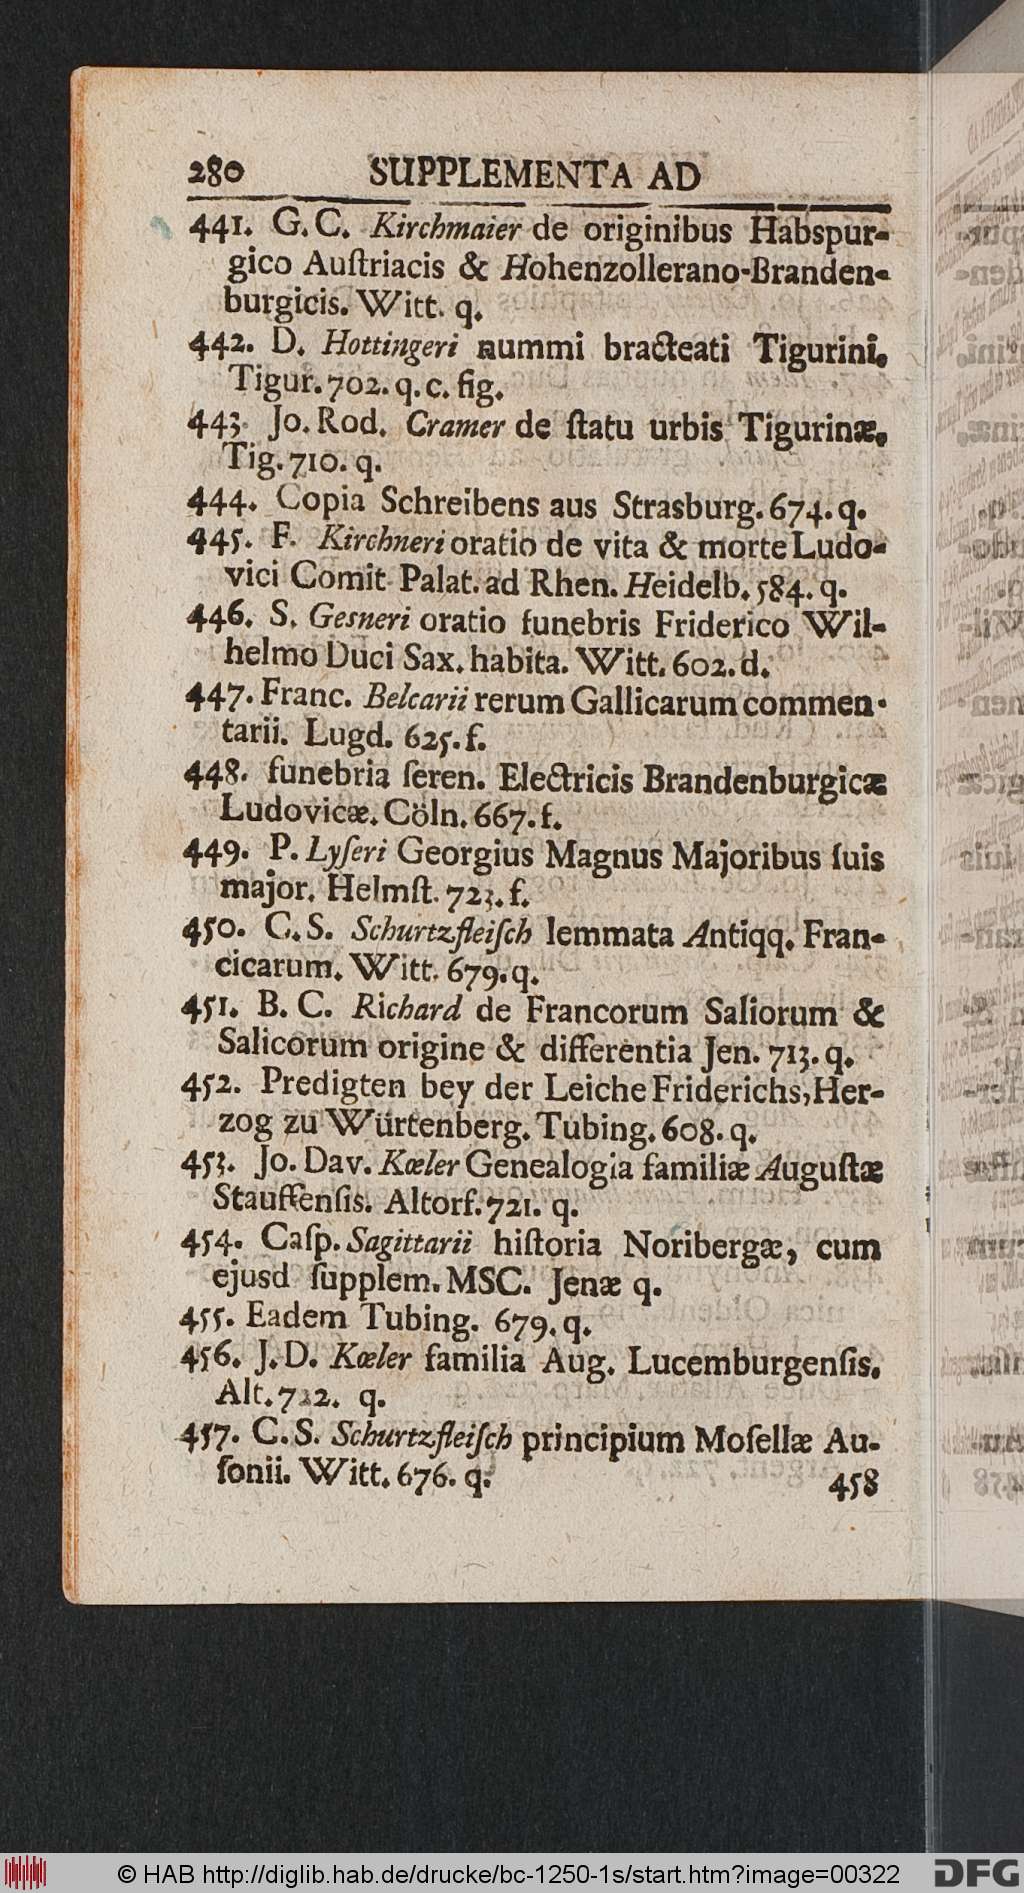 280 SUPPLEMENTA AD
441. G. C. Kirchmaier de originibus Habspur-
gico Auſtriacis & Hohenzollerano-Branden-
burgicis. Witt. q.
442. D. Hottingeri nummi bracteati Tigurini.
Tigur. 702. q. c. fig.
443. Jo. Rod. Cramer de ſtatu urbis Tigurinæ.
Tig. 710. q.
444. Copia Schreibens aus Strasburg. 674. q.
445. F. Kirchneri oratio de vita & morte Ludo-
vici Comit Palat. ad Rhen. Heidelb. 584. q.
446. S. Gesneri oratio funebris Friderico Wil-
helmo Duci Sax. habita. Witt. 602. d.
447. Franc. Belcarii rerum Gallicarum commen-
tarii. Lugd. 625. f.
448. funebria ſeren. Electricis Brandenburgicæ
Ludovicæ. Cöln. 667. f.
449. P. Lyſeri Georgius Magnus Majoribus ſuis
major. Helmſt. 723. f.
450. C. S. Schurtzfleiſch lemmata Antiqq. Fran-
cicarum. Witt. 679. q.
451. B. C. Richard de Francorum Saliorum &
Salicorum origine & differentia Jen. 713. q.
452. Predigten bey der Leiche Friderichs, Her-
zog zu Würtenberg. Tubing. 608. q.
453. Jo. Dav. Kœler Genealogia familiæ Auguſtæ
Stauffenſis. Altorf. 721. q.
454. Caſp. Sagittarii hiſtoria Noribergæ, cum
ejusd ſupplem. MSC. Jenæ q.
455. Eadem Tubing. 679. q.
456. J. D. Kœler familia Aug. Lucemburgenſis.
Alt. 722. q.
457. C. S. Schurtzfleiſch principium Moſellæ Au-
ſonii. Witt. 676. q.
458
© HAB http://diglib.hab.de/drucke/bc-1250-1s/start.htm?image=00322
DFG